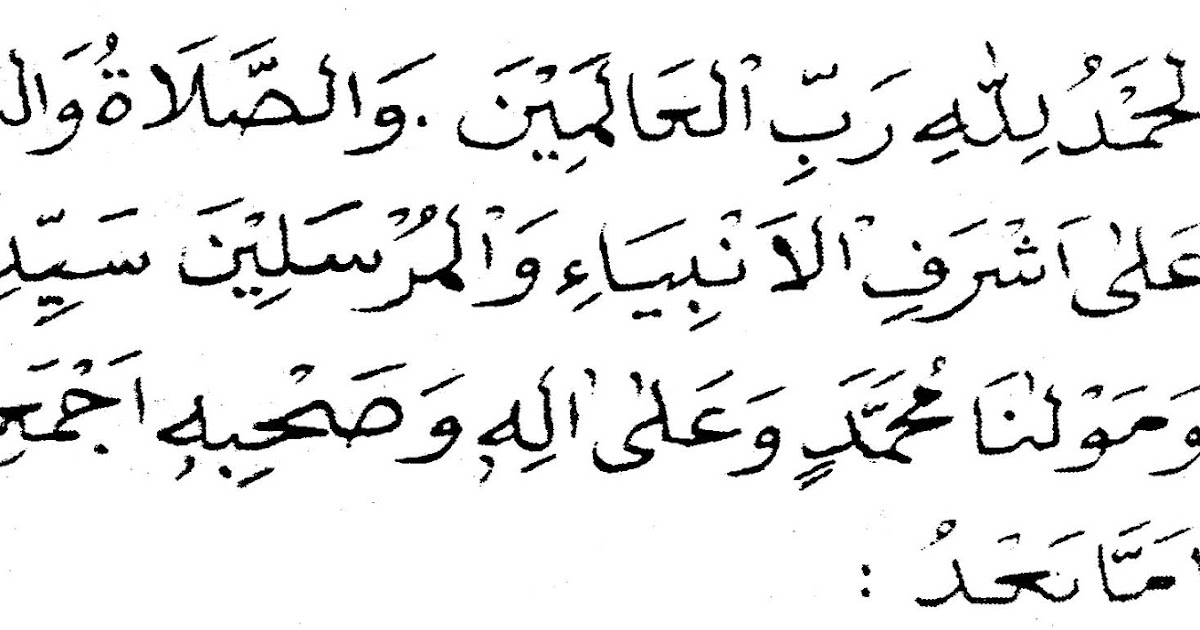 لحَمْدُ لِلّٰهِ رَبِّ الْعَالَمِيْنَ . وَالصَّلَاةُ وَال
عَلٰى اَشْرَفِ الْاَنْبِيَاءِ وَالْمُرْسَلِيْنَ سَيِّدِ
وَمَوْلٰنَا مُحَمَّدٍ وَعَلٰى اٰلِهٖ وَصَحْبِهٖ اَجْمَعِ
اَمَّا بَعْدُ :